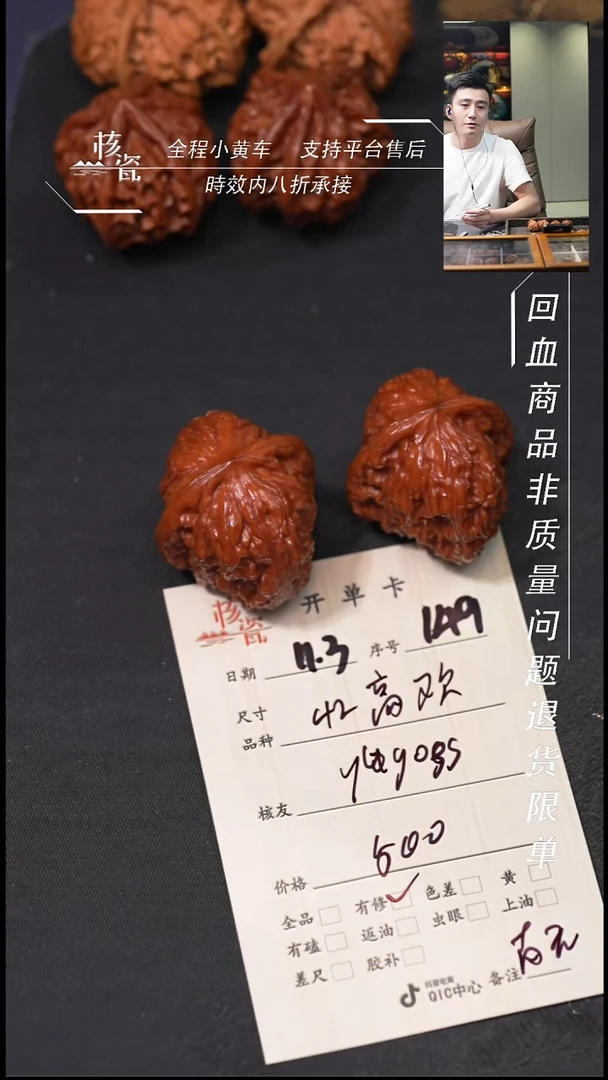 核瓷
全程小黄车 支持平台售后
時效内八折承接
回血商品非质量问题退货限单
核瓷
开单卡
日期 11.3 序号 149
尺寸 42高欢
品种
核友
价格 600
全品 有修 ✓ 色差 黄
有磕 返油 虫眼 上油
差尺 胶补
抖音电商
QIC中心 备注